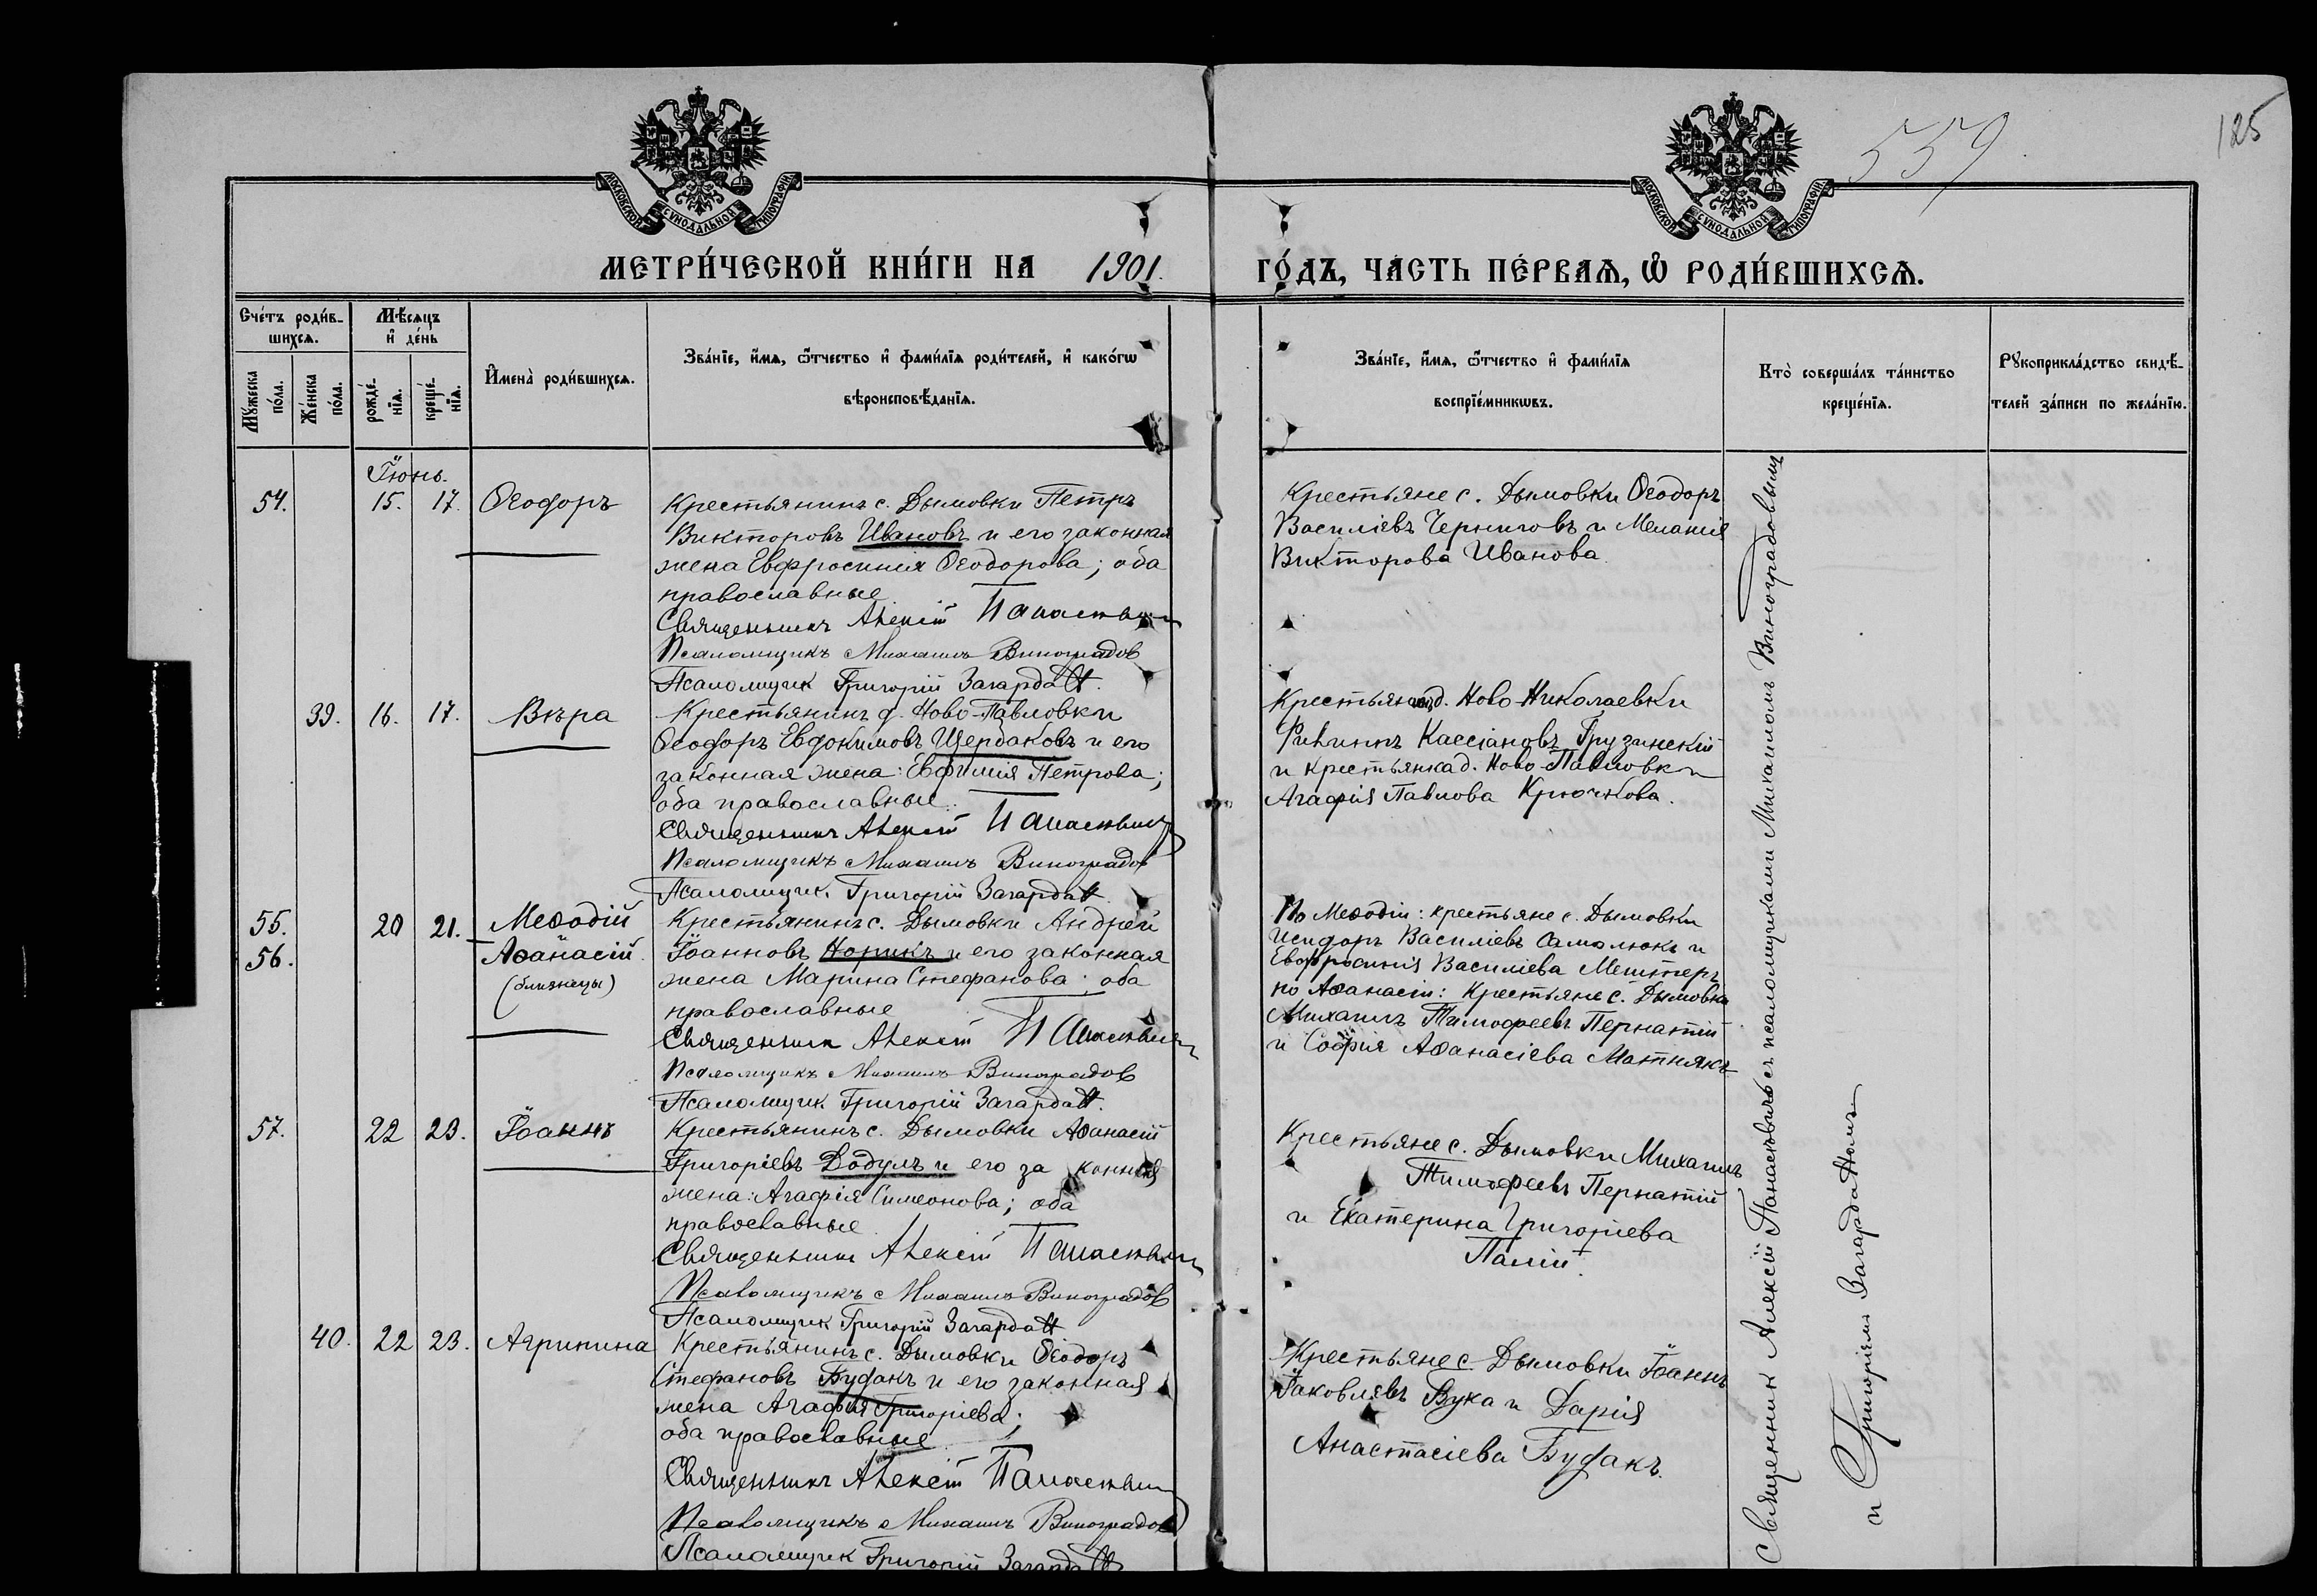 125
559
МОСКОВСКОЙ СѴНОДАЛЬНОЙ ТИПОГРАФІИ
МОСКОВСКОЙ СѴНОДАЛЬНОЙ ТИПОГРАФІИ
МЕТРИ́ЧЕСКОЙ КНИ́ГИ НА 1901. ГО́ДЪ, ЧА́СТЬ ПЕ́РВАѦ, Ѿ РОДИ́ВШИХСѦ.
Сче́тъ роди́в-
шихсѧ.
Мꙋ́жеска по́ла.
Же́нска по́ла.
Мѣ́сѧцъ
и҆ де́нь
рожде́-
нїѧ.
креще́-
нїѧ.
И҆мена̀ роди́вшихсѧ.
Зва́нїе, и҆́мѧ, ѻ҆́тчество и҆ фами́лїѧ роди́телей, и҆ како́гѡ
вѣроисповѣ́данїѧ.
Зва́нїе, и҆́мѧ, ѻ҆́тчество и҆ фами́лїѧ
воспрїе́мникѡвъ.
Кто̀ соверша́лъ та́инство
креще́нїѧ.
Рꙋкоприкла́дство свидѣ́-
телей за́писи по жела́нїю.
Іюнь.
54. 15. 17. Ѳеодоръ
Крестьянинъ с. Дымовки Петръ
Викторовъ Ивановъ и его законная
жена Евфросинія Ѳеодорова; оба
православные
Священникъ Алексій Панасевич
Псаломщикъ Михаилъ Виноградов
Псаломщик Григорій Загарда
Крестьяне с. Дымовки Ѳеодоръ
Василіевъ Черниговъ и Меланія
Викторова Иванова.
39. 16. 17. Вѣра
Крестьянинъ д. Ново-Павловки
Ѳеодоръ Евдокимовъ Щербаковъ и его
законная жена: Евфимія Петрова;
оба православные.
Священникъ Алексій Панасевич
Псаломщикъ Михаилъ Виноградов
Псаломщик. Григорій Загарда
д. Ново-Николаевки
Филиппъ Кассіановъ Грузинскій
и крестьянка д. Ново-Павловки
Агафія Павлова Крючкова.
55. 20 21. Меѳодій
56. Аѳанасій.
(близнецы)
Крестьянинъ с. Дымовки Андрей
Іоанновъ Норикъ и его законная
жена Марина Стефанова; оба
православные
Священник Алексій Панасевич
Псаломщикъ Михаилъ Виноградов
Псаломщик. Григорій Загарда
По Меѳодіи: крестьяне с. Дымовки
Исидоръ Василіевъ Самолюкъ и
Евфросинія Василіева Мештеръ
по Аѳанасіи: Крестьяне с. Дымовка
Михаилъ Тимофеевъ Пернатій
и Софія Аѳанасіева Матнякъ
57. 22 23. Іоаннъ
Крестьянинъ с. Дымовки Аѳанасій
Григоріевъ Додулъ и его законная
жена: Агафія Симеонова; оба
православные.
Священник Алексій Панасевич
Псаломщикъ Михаилъ Виноградов
Псаломщик Григорій Загарда
Крестьяне с. Дымовки Михаилъ
Тимофеевъ Пернатій
и Екатерина Григоріева
Палій.
40. 22 23. Агрипина
Крестьянинъ с. Дымовки Ѳеодоръ
Стефановъ Будакъ и его законная
жена Агафія Григоріева;
оба православные.
Священникъ Алексій Панасевич
Псаломщикъ Михаилъ Виноградов
Псаломщик Григорій Загарда
Крестьяне с Дымовки Іоаннъ
Іаковлевъ Вука и Дарія
Анастасіева Будакъ.
Священник Алексій Панасевичъ съ псаломщиками Михаиломъ Виноградовымъ
и Григоріемъ